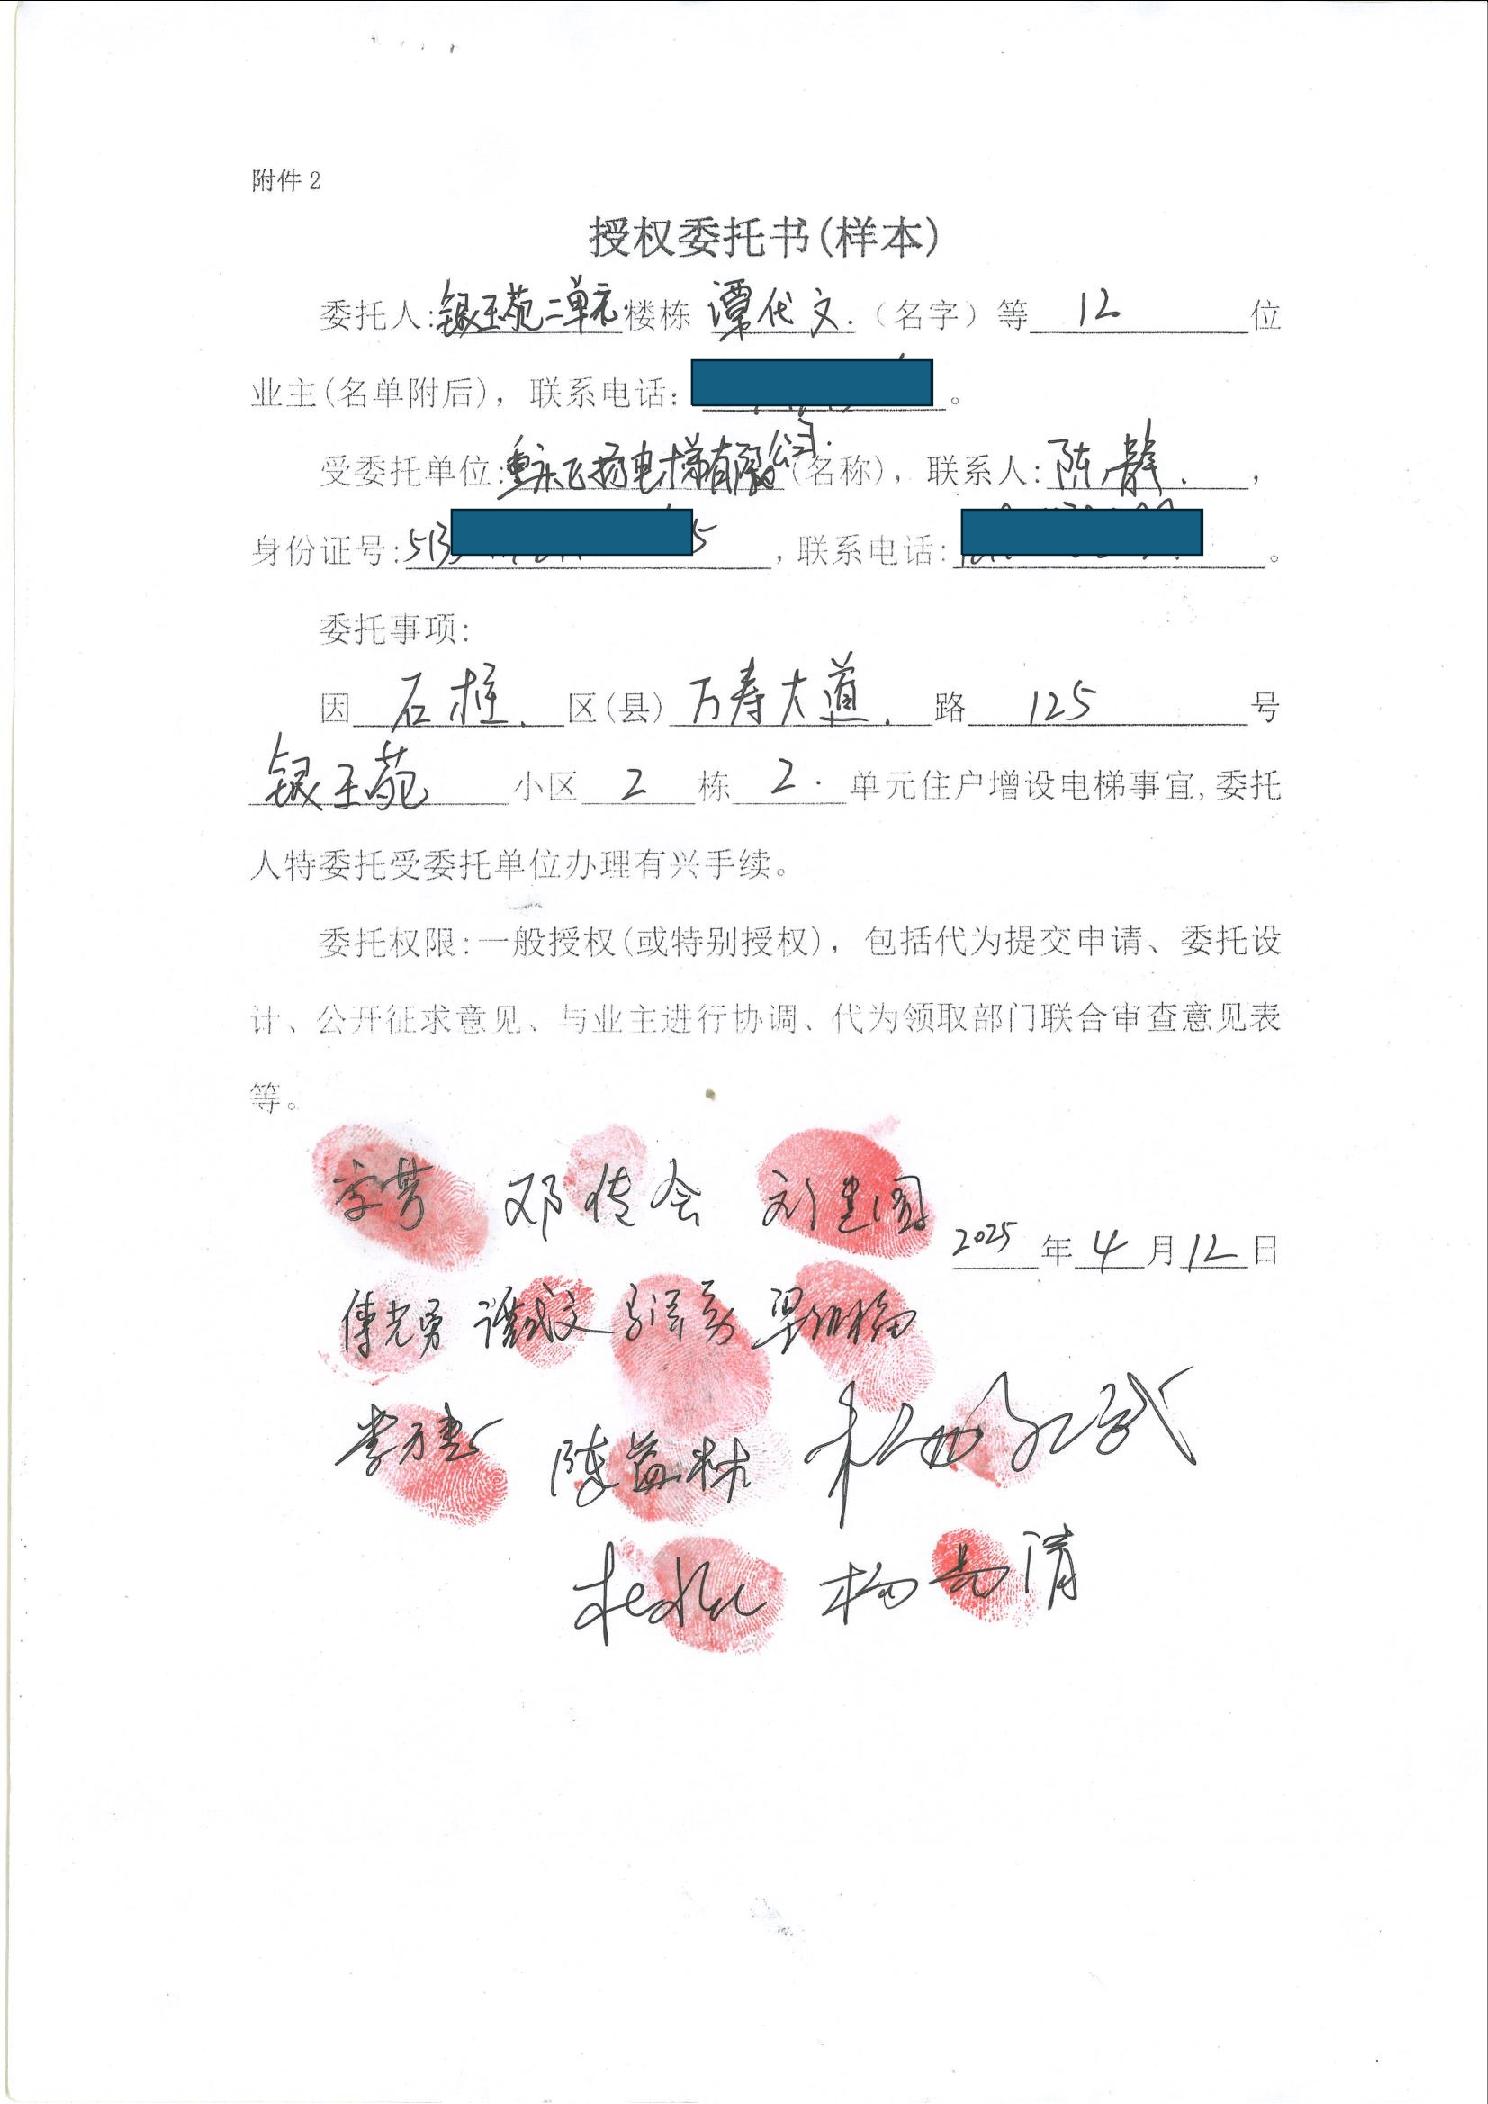 附件2
授权委托书(样本)
委托人:银玉苑二单元楼栋 谭代文.（名字）等 12 位
业主(名单附后)，联系电话: 。
受委托单位: 飞扬电梯有限公司.(名称)，联系人: 陈 . ，
身份证号:513 5 ，联系电话: 。
委托事项:
因 石柱. 区(县) 万寿大道. 路 125 号
银玉苑 小区 2 栋 2. 单元住户增设电梯事宜,委托
人特委托受委托单位办理有兴手续。
委托权限:一般授权(或特别授权)，包括代为提交申请、委托设
计、公开征求意见、与业主进行协调、代为领取部门联合审查意见表
等。
李芳 邓传会 刘建国
2025 年 4 月 12 日
傅光勇 谭代文
李万春 陈益林
杨昌清